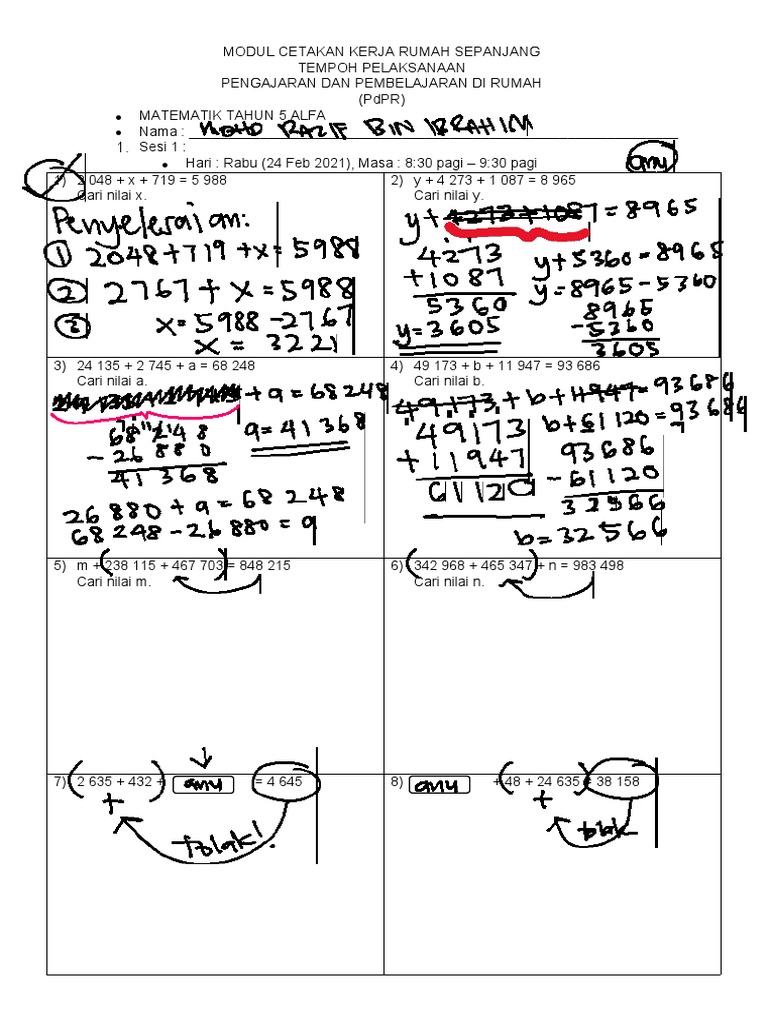 MODUL CETAKAN KERJA RUMAH SEPANJANG
TEMPOH PELAKSANAAN
PENGAJARAN DAN PEMBELAJARAN DI RUMAH
(PdPR)
• MATEMATIK TAHUN 5 ALFA
• Nama : MOHD RAZIF BIN IBRAHIM
1. Sesi 1 :
• Hari : Rabu (24 Feb 2021), Masa : 8:30 pagi – 9:30 pagi
anu
1) 2 048 + x + 719 = 5 988
Cari nilai x.
Penyelesaian:
① 2048+719+x=5988
② 2767+x=5988
③ x=5988-2767
x = 3221
2) y + 4 273 + 1 087 = 8 965
Cari nilai y.
y+4273+1087=8965
4273
+1087
5360
y=3605
y+5360=8965
y=8965-5360
8965
-5360
3605
3) 24 135 + 2 745 + a = 68 248
Cari nilai a.
+ a = 68 248
68 248
- 26 880
41 368
a=41368
26 880 + a = 68 248
68 248-26 880=a
4) 49 173 + b + 11 947 = 93 686
Cari nilai b.
49,173,+b+11947=93686
49173
+11947
61120
b+61120=93686
93686
-61120
32566
b=32566
5) m + (238 115 + 467 703) = 848 215
Cari nilai m.
6) (342 968 + 465 347) + n = 983 498
Cari nilai n.
7) (2 635 + 432) + anu = 4 645
+
tolak!
8) anu + (48 + 24 635) = 38 158
+
tolak